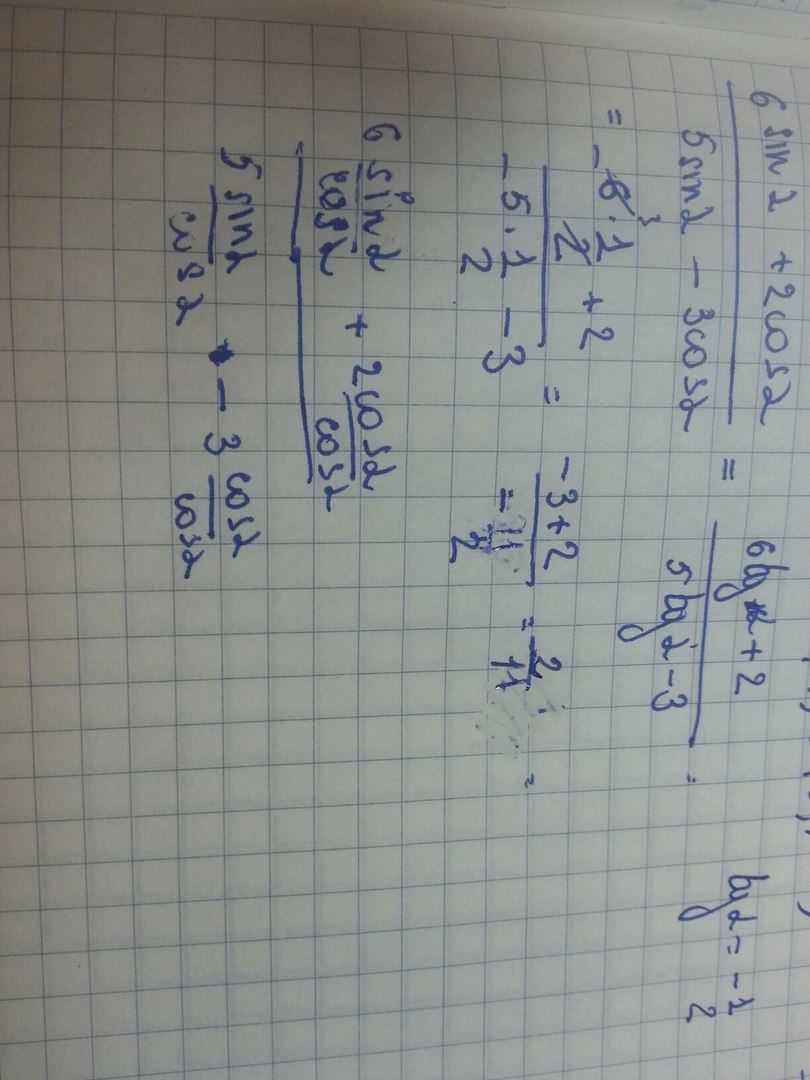 6 sin α + 2cos α / 5 sin α − 3cos α = 6tg α + 2 / 5tg α − 3 = tg α = −1/2
= −6³ · 1/2 + 2 / −5 · 1/2 − 3 = −3 + 2 / = 11/2 = 2/11 =
6 sin α/cos α + 2cos α/cos α
5 sin α/cos α − 3 cos α/cos α